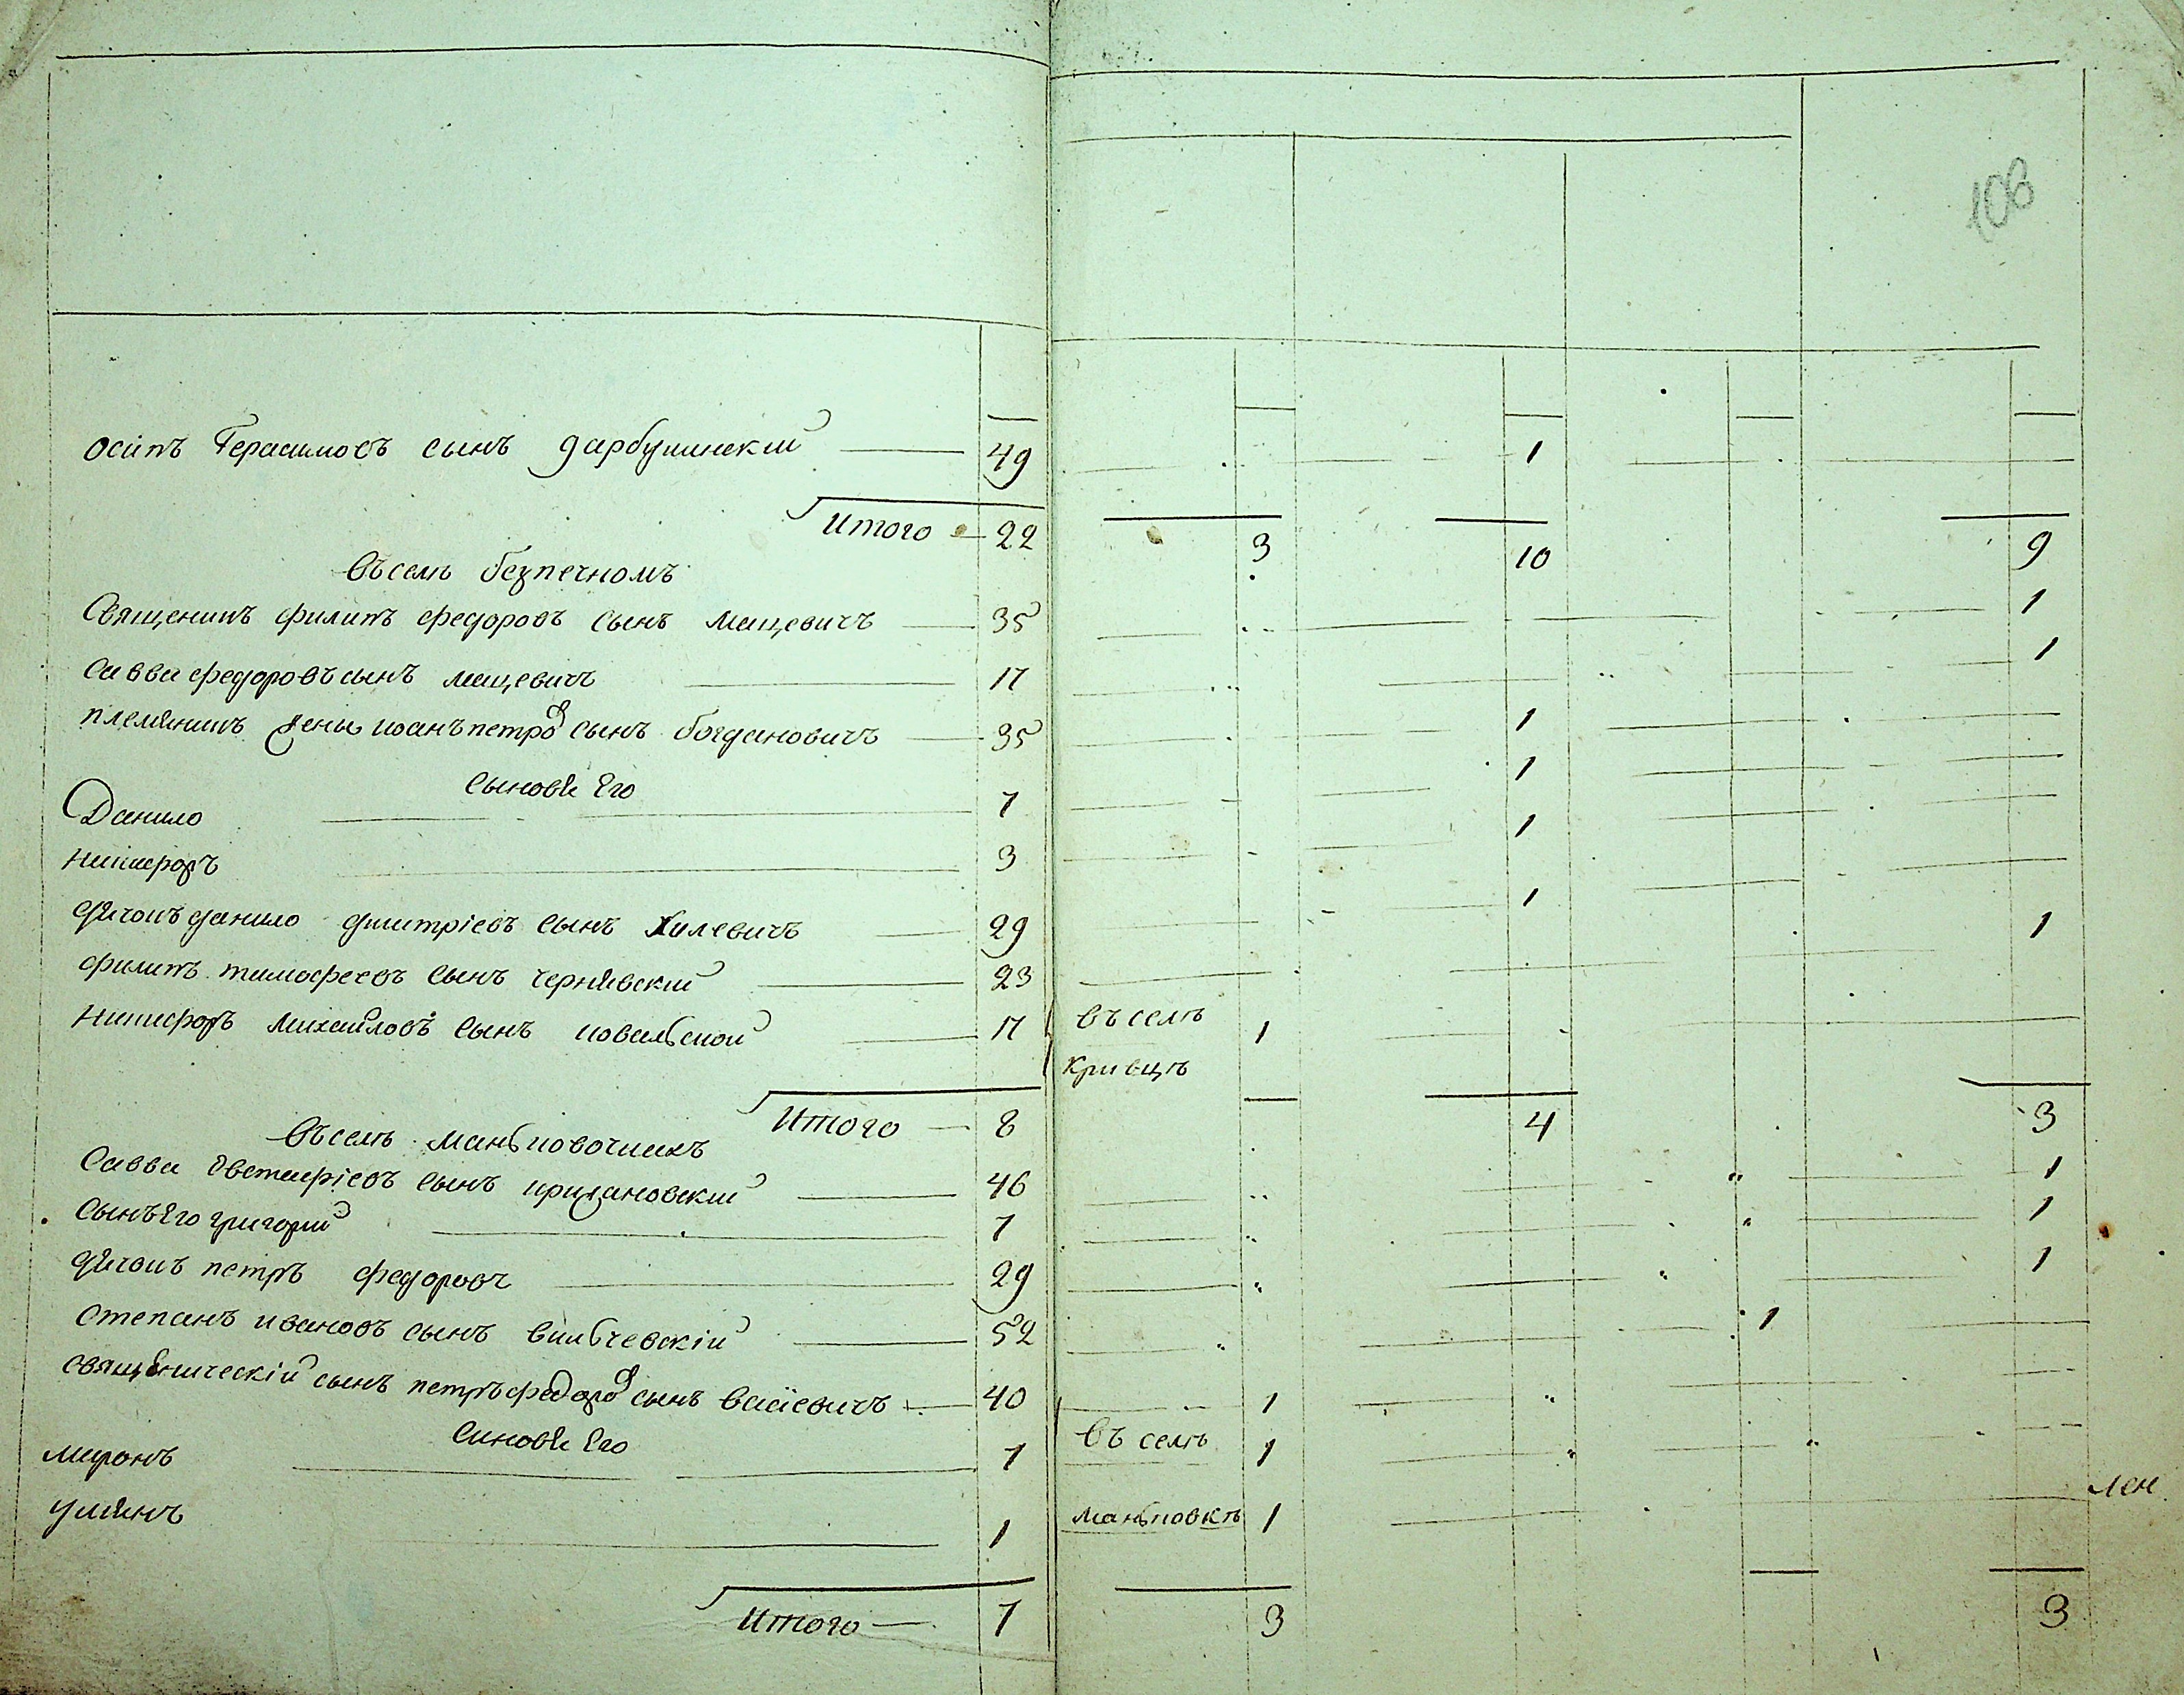 106
осипъ Герасимовъ сынъ дарбушинскій 49 1
Итого 22 3 10 9
Въ селѣ безпечномъ
Священикъ филипъ федоровъ сынъ мацевичъ 35 1
Савва федоровъ сынъ мацевичъ 17 1
племяникъ жены иоанъ петровъ сынъ богдановичъ 35 1
Сыновя Его
Данило 7 1
Никифоръ 3 1
дячокъ данило дмитріевъ сынъ Хилевичъ 29 1
филипъ тимофеевъ сынъ чернявскій 23 1
Никифоръ михайловъ сынъ ковальской 17 въ селѣ 1
Кривцѣ
Итого 8 4 3
Въ селѣ маньковочкахъ
Савва Евстафіевъ сынъ крижановскій 46 1
Сынъ Его григорий 7 1
дячокъ петръ федоровъ 29 1
Степанъ ивановъ сынъ вильчевскій 52 1
священическій сынъ петръ федоровъ сынъ васіевичъ 40 1
Синовя Его
миронъ 7 въ селѣ 1
улиянъ 1 маньковкѣ 1
лен
Итого 7 3 3